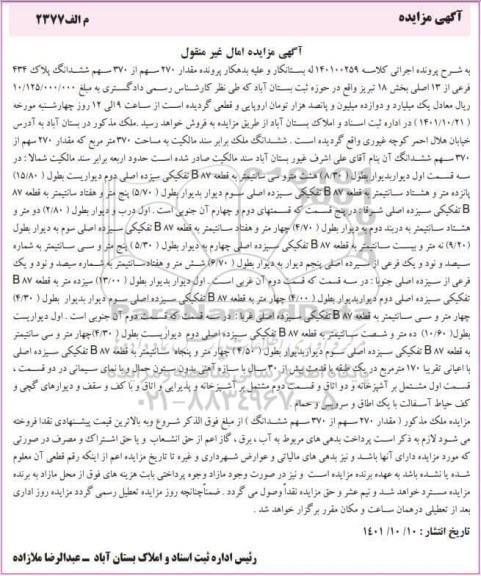 آگهی مزایده
م الف۲۳۷۷
آگهی مزایده اموال غیر منقول
به شرح پرونده اجرائی کلاسه ۱۴۰۱۰۰۲۵۹ له بستانکار و علیه بدهکار پرونده مقدار ۲۷۰ سهم از ۳۷۰ سهم ششدانگ پلاک ۴۳۴
فرعی از ۱۳اصلی بخش ۱۸ تبریز واقع در حوزه ثبت بستان آباد که طی نظر کارشناس رسمی دادگستری به مبلغ ۱۰/۱۲۵/۰۰۰/۰۰۰
ریال معادل یک میلیارد و دوازده میلیون و پانصد هزار تومان ارزیابی و قطعی گردیده است از ساعت ۹ الی ۱۲ روز چهارشنبه مورخه
(۱۴۰۱/۱۰/۲۱) در اداره ثبت اسناد و املاک بستان آباد از طریق مزایده به فروش خواهد رسید .ملک مذکور در بستان آباد به آدرس
خیابان هلال احمر کوچه غیوری واقع گردیده است . ششدانگ ملک برابر سند مالکیت به مساحت ۳۷۰متر مربع که مقدار ۲۷۰ سهم از
۳۷۰ سهم ششدانگ آن بنام آقای علی اشرف غیور بستان آباد سند مالکیت صادر شده است حدود اربعه برابر سند مالکیت شمالا : در
سه قسمت اول دیواربدیوار بطول (۸/۳۰) هشت متر و سی سانتیمتر به قطعه B ۸۷ تفکیکی سیزده اصلی دوم دیواریست بطول (۱۵/۸۰)
پانزده متر و هشتاد سانتیمتر به قطعه B ۸۷ تفکیکی سیزده اصلی سوم دیوار بدیوار بطول (۵/۷۰) پنج متر و هفتاد سانتیمتر به قطعه ۸۷
B تفکیکی سیزده اصلی شرقا : در پنج قسمت که قسمتهای دوم و چهارم آن جنوبی است . اول درب و دیوار بطول (۲/۸۰) دو متر و
هشتاد سانتیمتر به دربند دوم به دیوار بطول (۴/۷۰) چهار متر و هفتاد سانتیمتر به قطعه B ۸۷ تفکیکی سیزده اصلی سوم دیوار بدیوار بطول
(۹/۲۰) نه متر و بیست سانتیمتر به قطعه B ۸۷ تفکیکی سیزده اصلی چهارم به دیوار بطول (۵/۳۰) پنج متر و سی سانتیمتر به شماره
سیصد و نود و یک فرعی از سیزده اصلی پنجم دیوار به دیوار بطول (۶/۷۰) شش متر و هفتادسانتیمتر به شماره سیصد و نود و یک
فرعی از سیزده اصلی جنوبا : در سه قسمت که قسمت دوم آن غربی است . اول دیوار بدیوار بطول (۱۳/۰۰) سیزده متر به قطعه B ۸۷
تفکیکی سیزده اصلی دوم دیوار بدیوار بطول (۴/۰۰) چهار متر به قطعه B ۸۷ تفکیکی سیزده اصلی سوم دیوار بدیوار بطول (۴/۳۰)
چهار متر و سی سانتیمتر به قطعه B ۸۷ تفکیکی سیزده اصلی غربا : در سه قسمت که قسمت دوم آن جنوبی است . اول دیواریست
بطول (۱۰/۶۰) ده متر و شصت سانتیمتر به قطعه B ۸۷ تفکیکی سیزده اصلی دوم دیواریست بطول (۴/۳۰)چهار متر و سی سانتیمتر
به قطعه B ۸۷ تفکیکی سیزده اصلی سوم دیواربدیوار بطول (۴/۵۰) چهار متر و پنجاه سانتیمتر به قطعه B ۸۷ تفکیکی سیزده اصلی
با اعیانی تقریبا ۱۷۰ مترمربع در یک طبقه با قدمت بیش از ۳۰ سال با سازه آهنی بدون ستون حمال و با نمای سیمانی در دو قسمت ،
قسمت اول مشتمل بر آشپزخانه و دو اتاق و قسمت دوم مشتمل بر آشپزخانه و پذیرایی و اتاق و با کف و سقف و دیوارهای گچی و
کف حیاط آسفالت با یک اطاق و سرویس و حمام
مزایده ملک مذکور ( مقدار ۲۷۰ سهم از ۳۷۰ سهم ششدانگ ) از مبلغ فوق الذکر شروع وبه بالاترین قیمت پیشنهادی نقدا فروخته
می شود لازم به ذکر است پرداخت بدهی های مربوط به آب ، برق ، گاز اعم از حق انشعاب و یا حق اشتراک و مصرف در صورتی
که مورد مزایده دارای آنها باشد و نیز بدهی های مالیاتی و عوارض شهرداری و غیره تا تاریخ مزایده اعم از اینکه رقم قطعی آن معلوم
شده یا نشده باشد به عهده برنده مزایده است و نیز در صورت وجود مازاد وجوه پرداختی بابت هزینه های فوق از محل مازاد به برنده
مزایده مسترد خواهد شد و نیم عشر و حق مزایده نقداً وصول می گردد . ضمناًچنانچه روز مزایده تعطیل رسمی گردد مزایده روز اداری
بعد از تعطیلی درهمان ساعت و مکان مقرر برگزار خواهد شد .
تاریخ انتشار : ۱۰/ ۱۰/ ۱۴۰۱
رئیس اداره ثبت اسناد و املاک بستان آباد – عبدالرضا ملازاده
۰۲۱-۸۸۳۴۹۶۷۰-۵